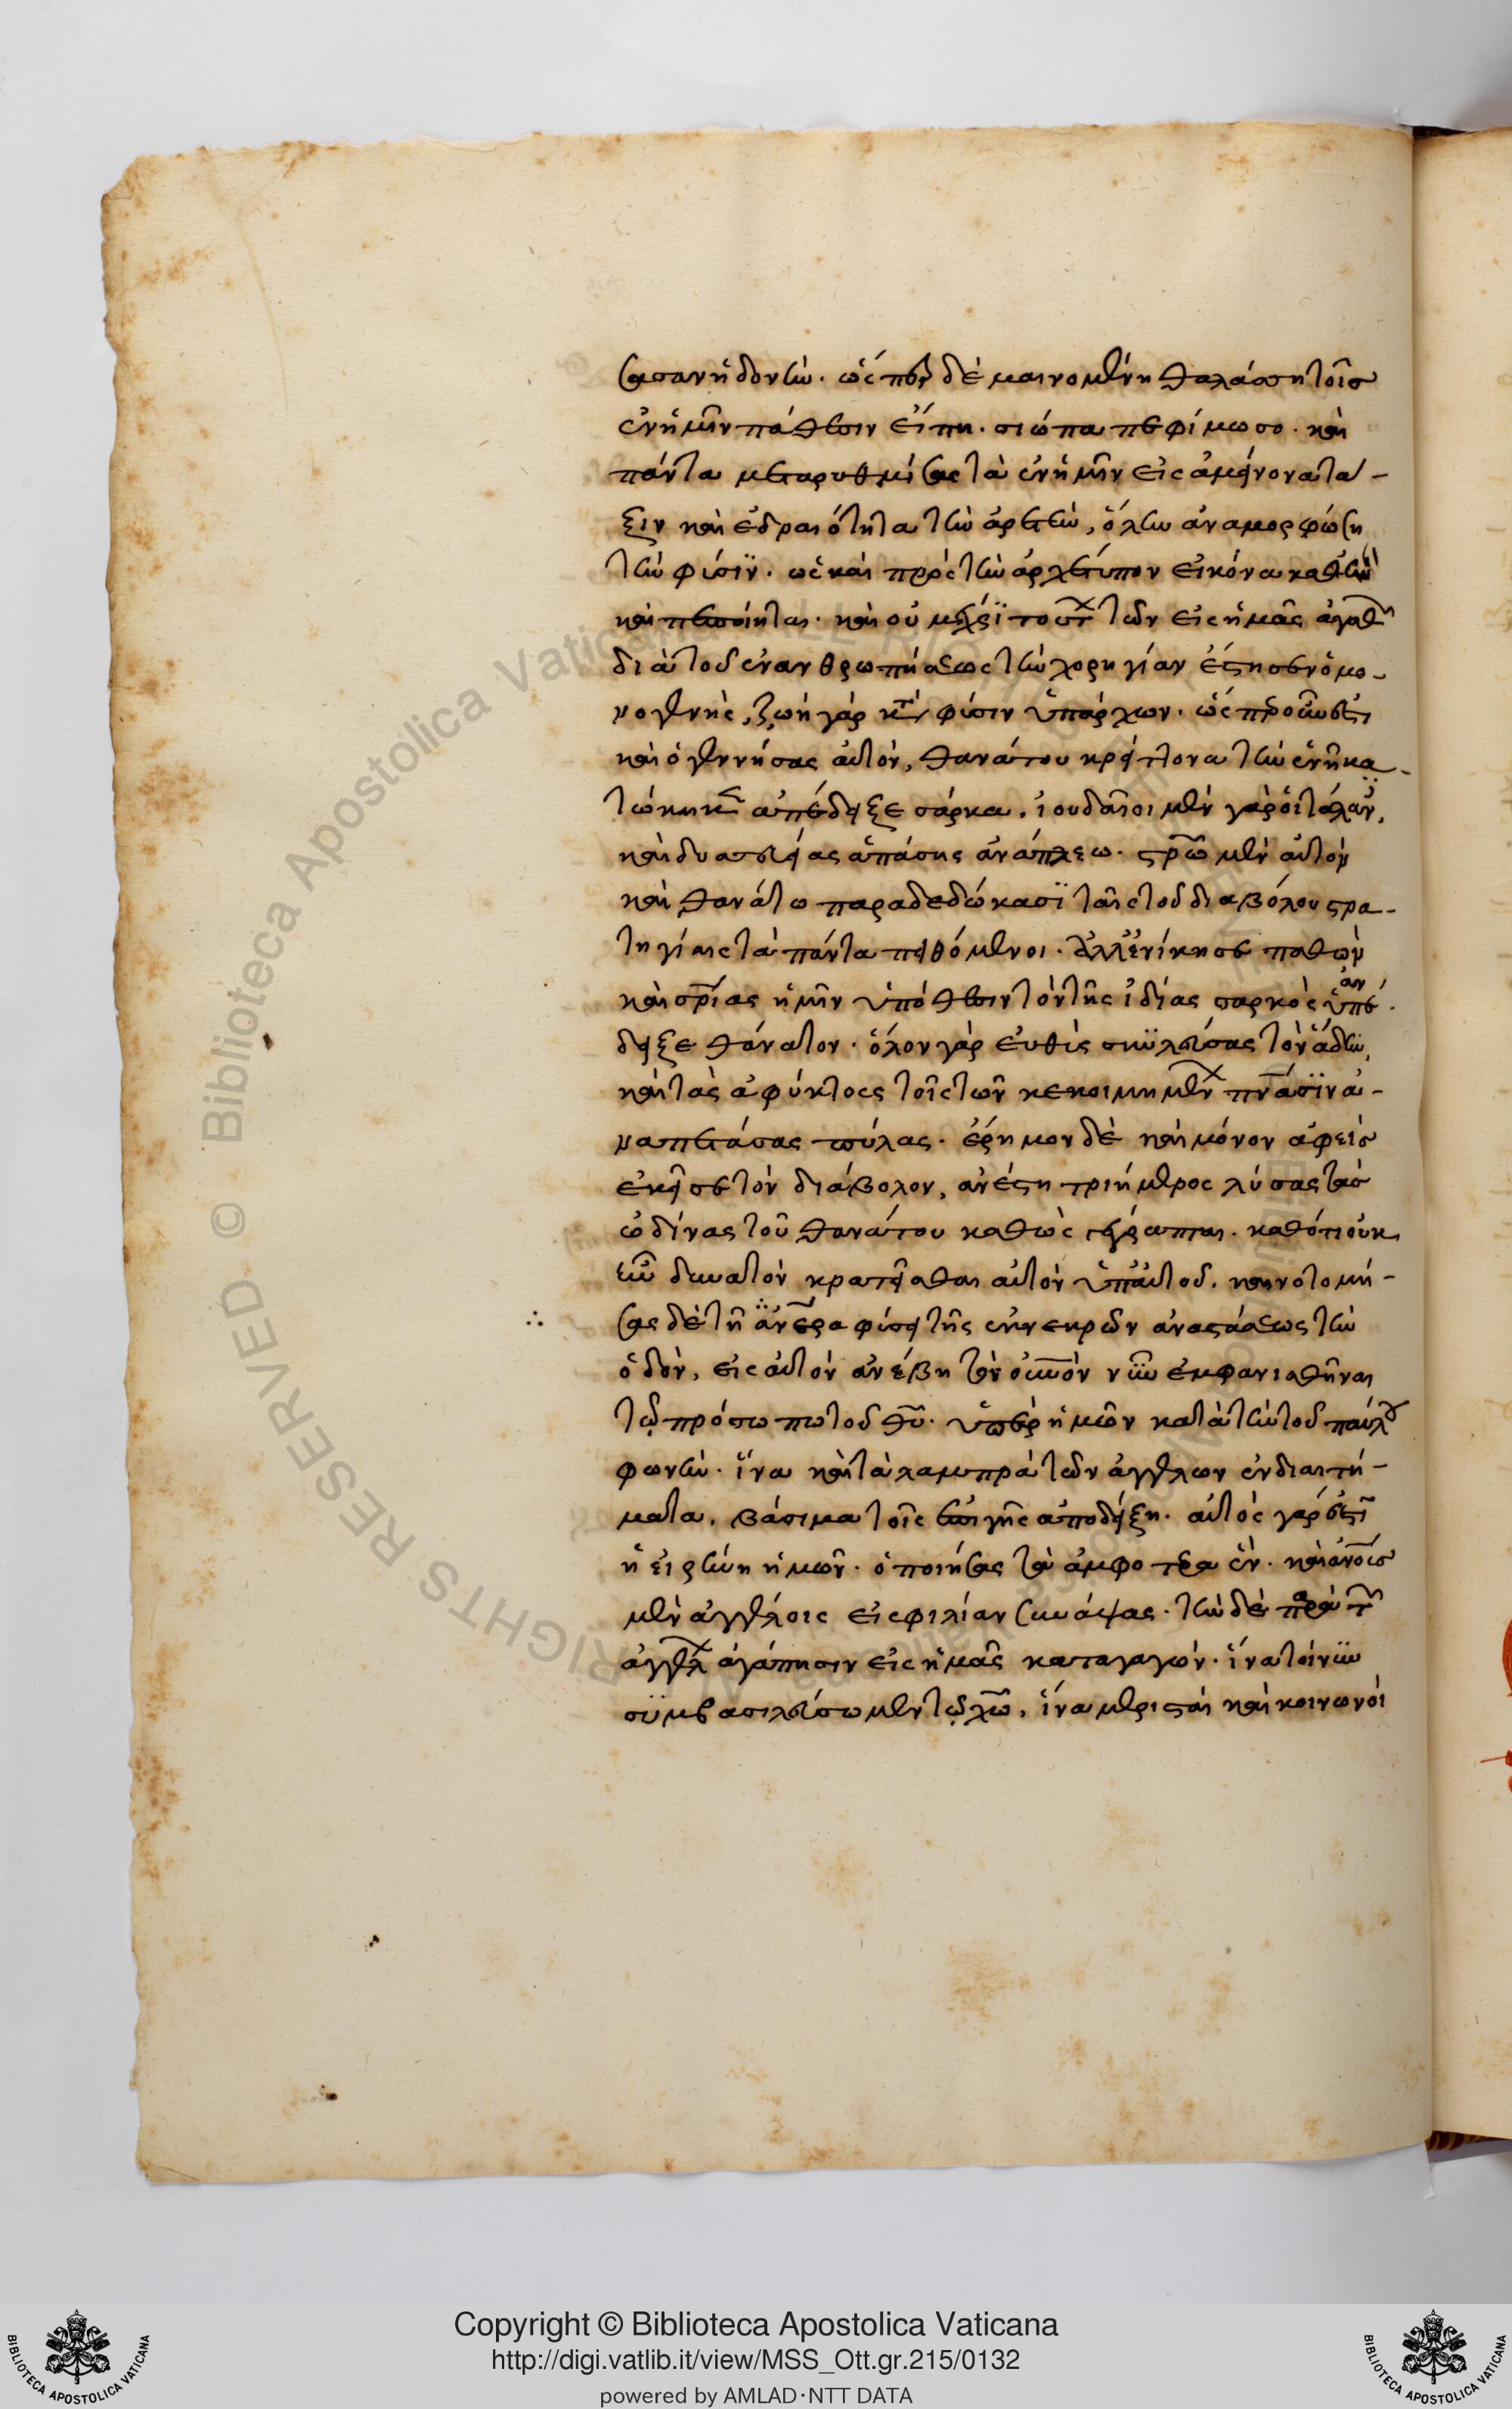 σασαν ἡδονήν. ὥσπερ δὲ μαινομένη θαλάσση τοῖς
ἐν ἡμῖν πάθεσιν εἴπη. σιώπα πεφίμωσο. καὶ
πάντα μεταρυθμίσας τὰ ἐν ἡμῖν εἰς ἀμείνονα τά-
ξιν καὶ ἑδραιότητα τὴν ἀρετήν, ὅλην ἀναμορφώση
τὴν φύσιν. ὡς καὶ πρὸς τὴν ἀρχέτυπον εἰκόνα καθ' ἣν
καὶ πεποίηται. καὶ οὐ μέχρι τούτων τῶν εἰς ἡμᾶς ἀγαθῶν
διὰ τοῦ ἐνανθρωπήσεως τὴν χορηγίαν ἔστησεν ὁ μο-
νογενής, ζωὴ γὰρ κατὰ φύσιν ὑπάρχων. ὥσπερ οὖν ἐστι
καὶ ὁ γεννήσας αὐτόν, θανάτου κρείττονα τὴν ἐν ᾗ κα-
τώκηκεν ἀπέδειξε σάρκα. ἰουδαῖοι μὲν γὰρ οἱ τάλαν,
καὶ δυσσεβείας ἁπάσης ἀνάπλεω. σταυρῶ μὲν αὐτὸν
καὶ θανάτω παραδεδώκασι ταῖς τοῦ διαβόλου στρα-
τηγίαις τὰ πάντα πειθόμενοι. ἀλλ' ἐνίκησε παθὼν
καὶ σωτηρίας ἡμῖν ὑπόθεσιν τὸν τῆς ἰδίας σαρκὸς ὑπέ-
δειξε θάνατον. ὅλον γὰρ εὐθὺς σκυλεύσας τὸν ἅδην,
καὶ τὰς ἀφύκτους τοῖς τῶν κεκοιμημένων πνάσιν ἀ-
ναπετάσας πύλας. ἔρημον δὲ καὶ μόνον ἀφεὶς
ἐκεῖσε τὸν διάβολον, ἀνέστη τριήμερος λύσας τὰς
ὠδῖνας τοῦ θανάτου καθὼς γέγραπται. καθότι οὐκ
ἦν δυνατὸν κρατεῖσθαι αὐτὸν ὑπ' αὐτοῦ. καινοτομή-
σας δὲ τῆ ἀνθρωπεία φύσει τῆς ἐκ νεκρῶν ἀναστάσεως τὴν
ὁδόν, εἰς αὐτὸν ἀνέβη τὸν οὐνὸν νῦν ἐμφανισθῆναι
τῷ προσώπω τοῦ θυ. ὑπὲρ ἡμῶν κατὰ τὴν τοῦ παύλου
φωνήν. ἵνα καὶ τὰ λαμπρὰ τῶν ἀγγέλων ἐνδιαιτή-
ματα, βάσιμα τοῖς ἐπὶ γῆς ἀποδείξη. αὐτὸς γάρ ἐστιν
ἡ εἰρήνη ἡμῶν. ὁ ποιήσας τὰ ἀμφότερα ἕν. καὶ ἀνοις
μὲν ἀγγέλοις εἰς φιλίαν συνάψας. τὴν δὲ παρὰ τῶν
ἀγγέλων ἀγάπησιν εἰς ἡμᾶς καταγαγών. ἵνα τοίνυν
συμβασιλεύσωμεν τῷ χω, ἵνα μερισταὶ καὶ κοινωνοὶ
Copyright © Biblioteca Apostolica Vaticana
http://digi.vatlib.it/view/MSS_Ott.gr.215/0132
powered by AMLAD·NTT DATA